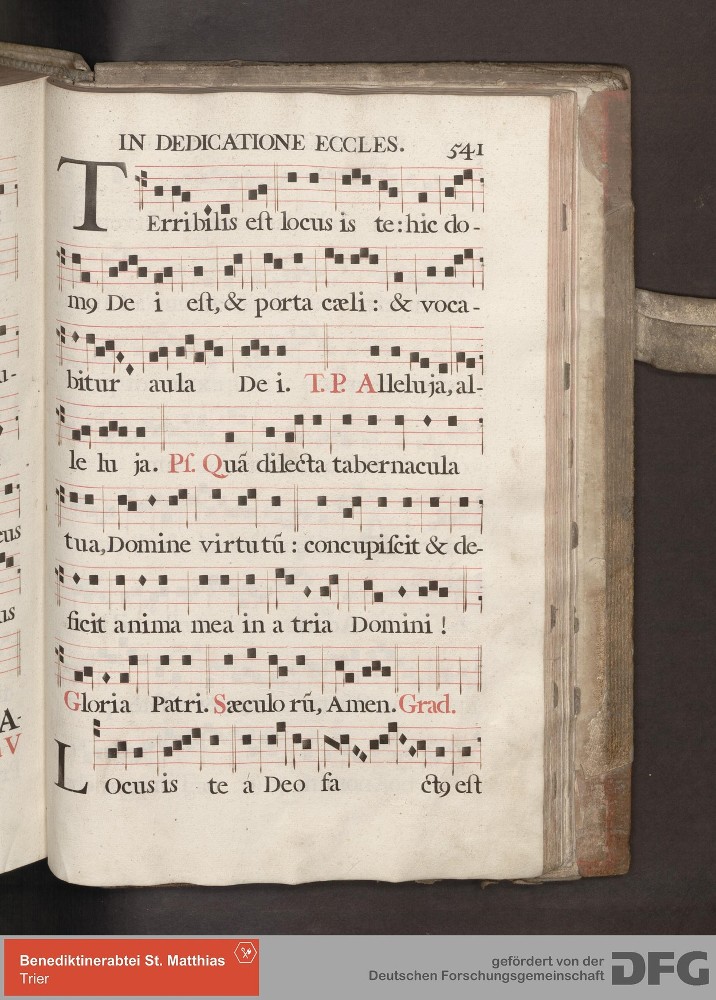 IN DEDICATIONE ECCLES. 541
TErribilis eſt locus is te: hic do-
mꝯ De i eſt, & porta cæli : & voca-
bitur aula De i. T. P. Alleluja, al-
le lu ja. Pſ. Quã dilecta tabernacula
tua, Domine virtutũ : concupiſcit & de-
ficit anima mea in a tria Domini !
Gloria Patri. Sæculo rũ, Amen. Grad.
LOcus is te á Deo fa ctꝯ eſt
u-
cus
us
A-
V
Benediktinerabtei St. Matthias
Trier
gefördert von der
Deutschen Forschungsgemeinschaft
DFG